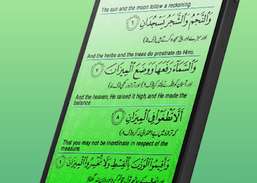 The sun and the moon follow a reckoning.
وَالنَّجْمُ وَالشَّجَرُ يَسْجُدَانِ ﴿٦﴾
And the herbs and the trees do prostrate to Him.
وَالسَّمَاءَ رَفَعَهَا وَوَضَعَ الْمِيزَانَ ﴿٧﴾
And the heaven, He raised it high, and He made the
balance.
أَلَّا تَطْغَوْا فِي الْمِيزَانِ ﴿٨﴾
That you may be not inordinate in respect of the
measure.
وَأَقِيمُوا الْوَزْنَ بِالْقِسْطِ وَلَا تُخْسِرُوا الْمِيزَانَ ﴿٩﴾